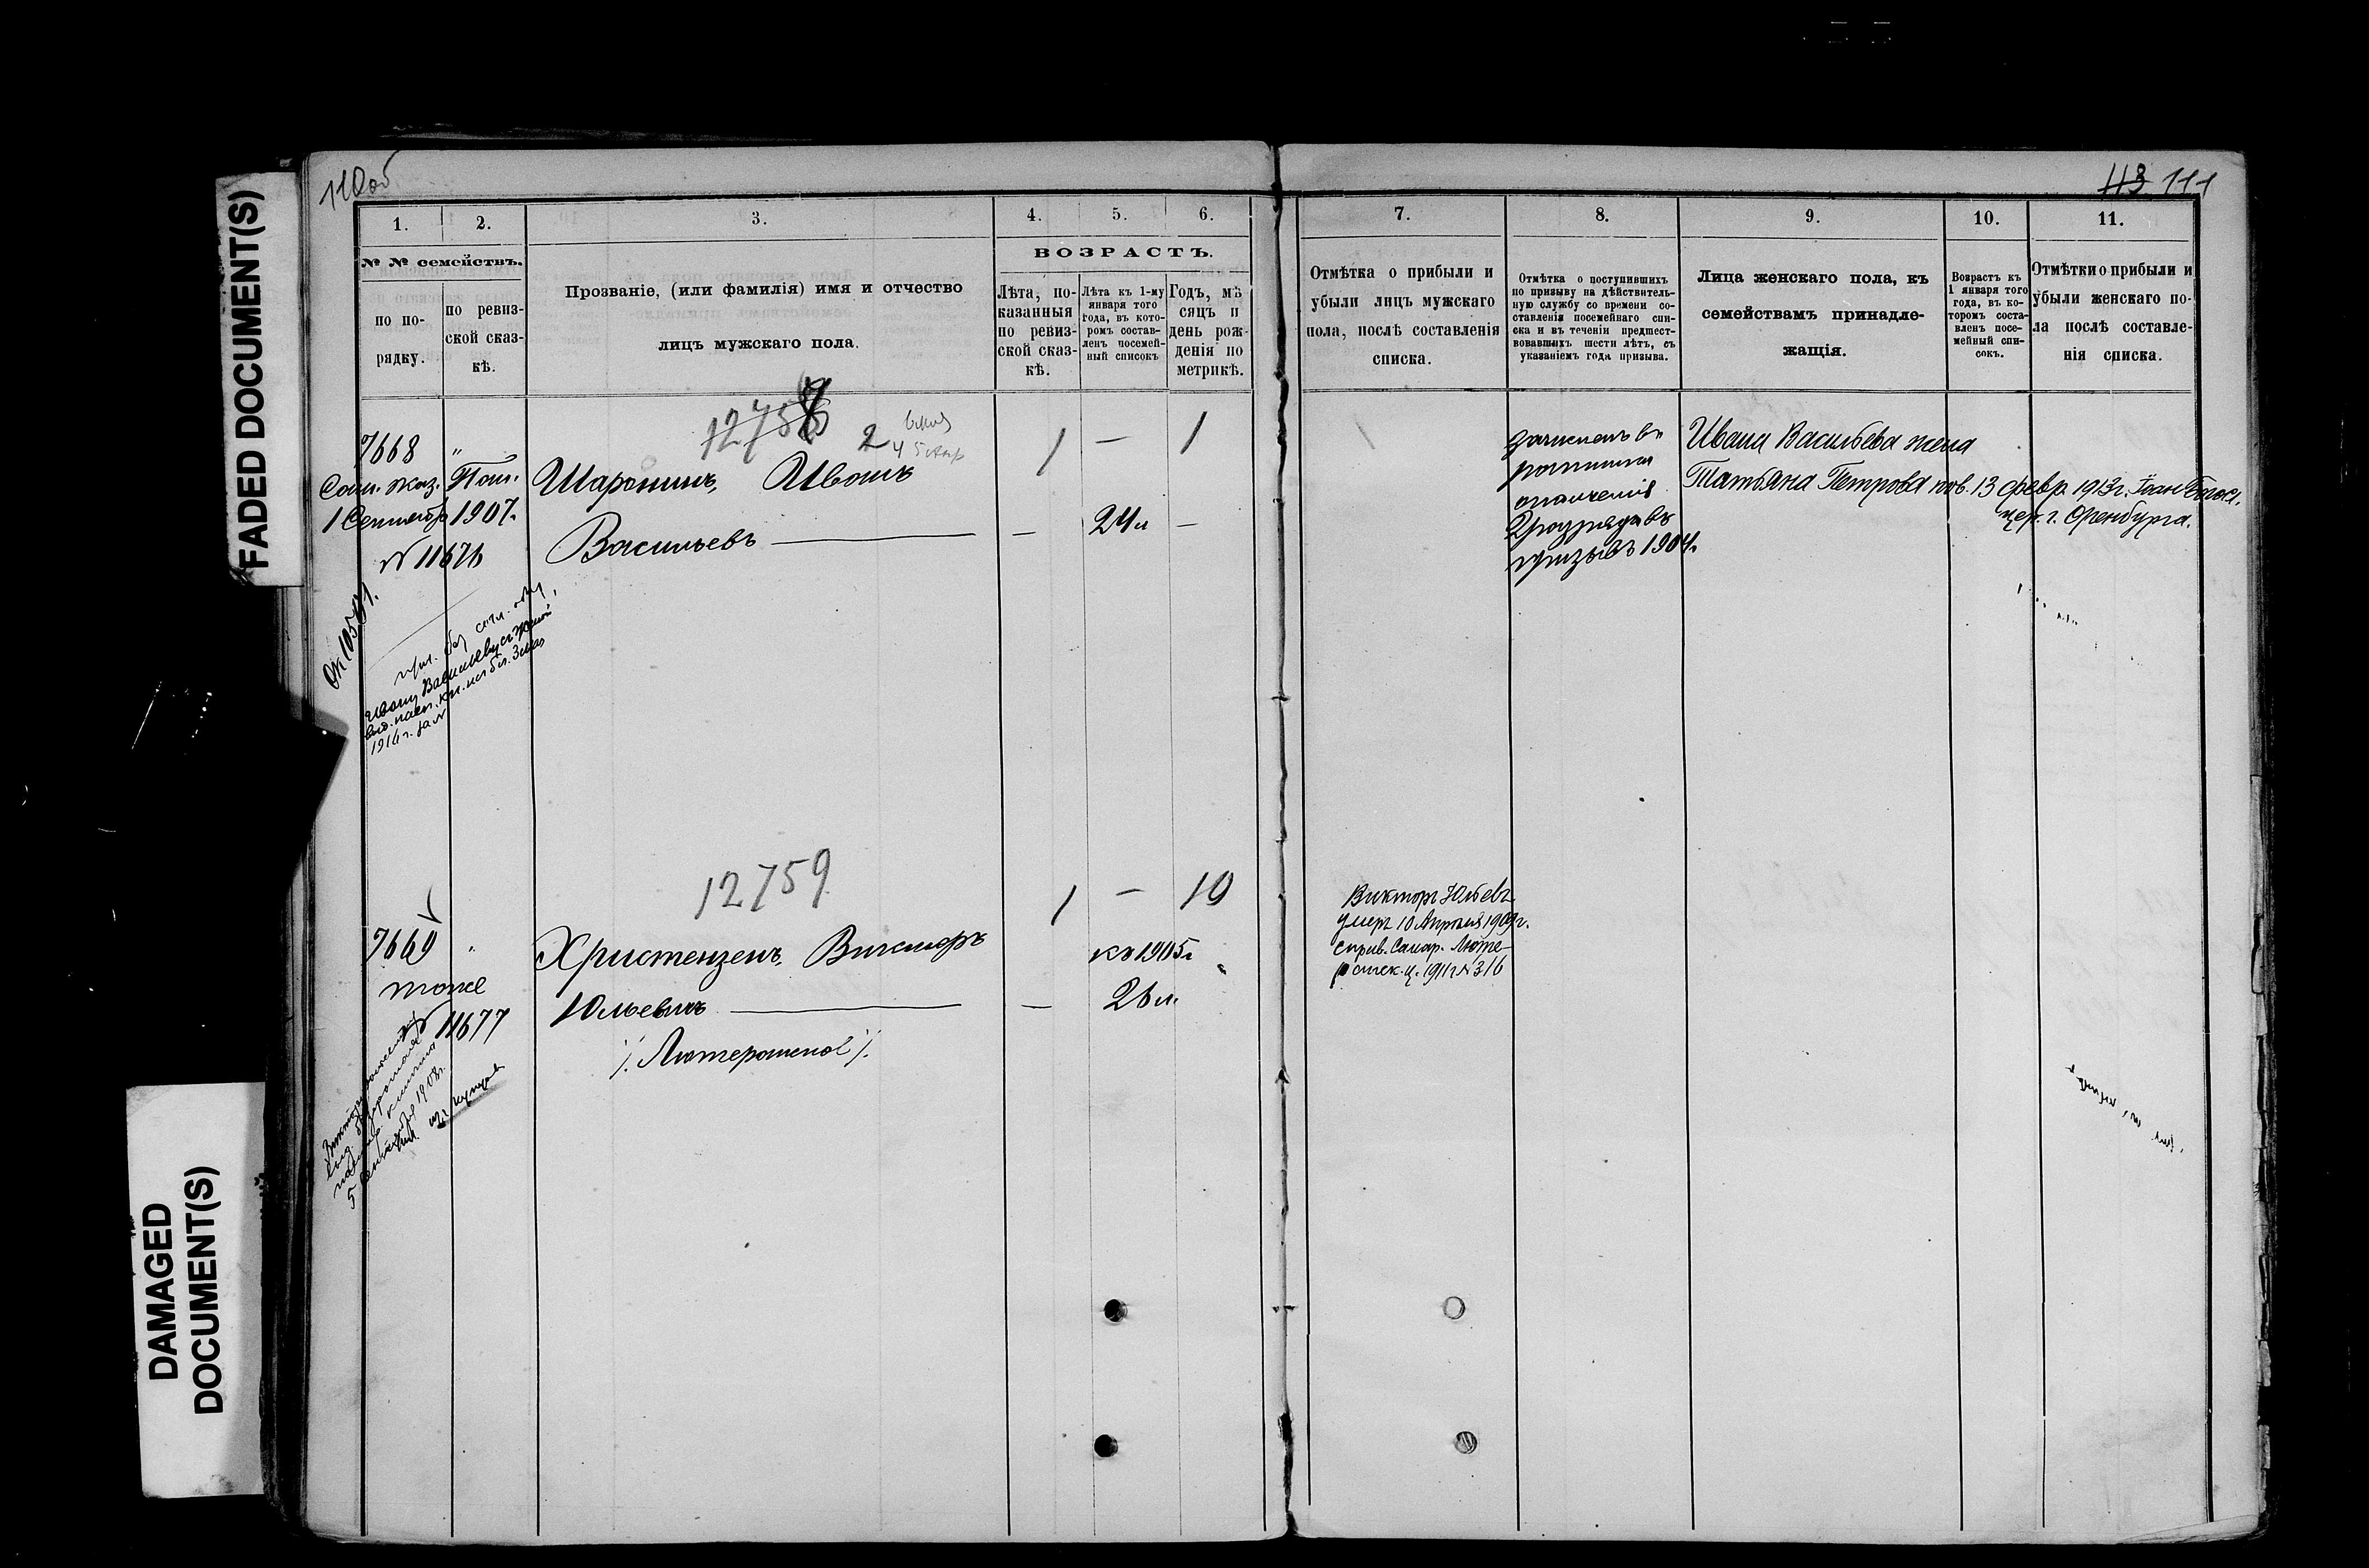 FADED DOCUMENT(S)
DAMAGED
DOCUMENT(S)
110об
113 111
1.
2.
3.
4.
5.
6.
7.
8.
9.
10.
11.
№ № семействъ.
по по-
рядку.
по ревиз-
ской сказ-
кѣ.
Прозваніе, (или фамилія) имя и отчество
лицъ мужскаго пола.
ВОЗРАСТЪ.
Лѣта, по-
казанныя
по ревиз-
ской сказ-
кѣ.
Лѣта къ 1-му
января того
года, въ кото-
ромъ состав-
ленъ посемей-
ный списокъ
Годъ, мѣ
сяцъ и
день рож-
денія по
метрикѣ.
Отмѣтка о прибыли и
убыли лицъ мужскаго
пола, послѣ составленія
списка.
Отмѣтка о поступившихъ
по призыву на дѣйствитель-
ную службу со времени со-
ставленія посемейнаго спи-
ска и въ теченіи предшест-
вовавшихъ шести лѣтъ, съ
указаніемъ года призыва.
Лица женскаго пола, къ
семействамъ принадле-
жащія.
Возрастъ къ
1 января того
года, въ ко-
торомъ соста-
вленъ посе-
мейный спи-
сокъ.
Отмѣтки о прибыли и
убыли женскаго по-
ла послѣ составле-
нія списка.
12758
2
1 — 1
7668 "
Шаронинъ, Иванъ
1 Сентября 1907г.
№ 11676
Васильевъ — — 24 л —
зачисленъ въ
ратники
ополченія
2 разряда въ
призывъ 1904г.
Ивана Васильева жена
Татьяна Петрова пов. 13 февр. 1913г. Іоан-Богосл.
цер. г. Оренбурга.
Ивану Васильеву съ женой
12759
1 — 10
7669 "
тоже
№ 11677
Христензенъ, Викторъ
Юльевичъ — —
/. Лютеранской /.
къ 1905г
26 л.
Викторъ Юльевъ
умеръ 10 Апрѣля 1909г.
справ. Самар. Люте-
ранск. ц. 1911г № 316